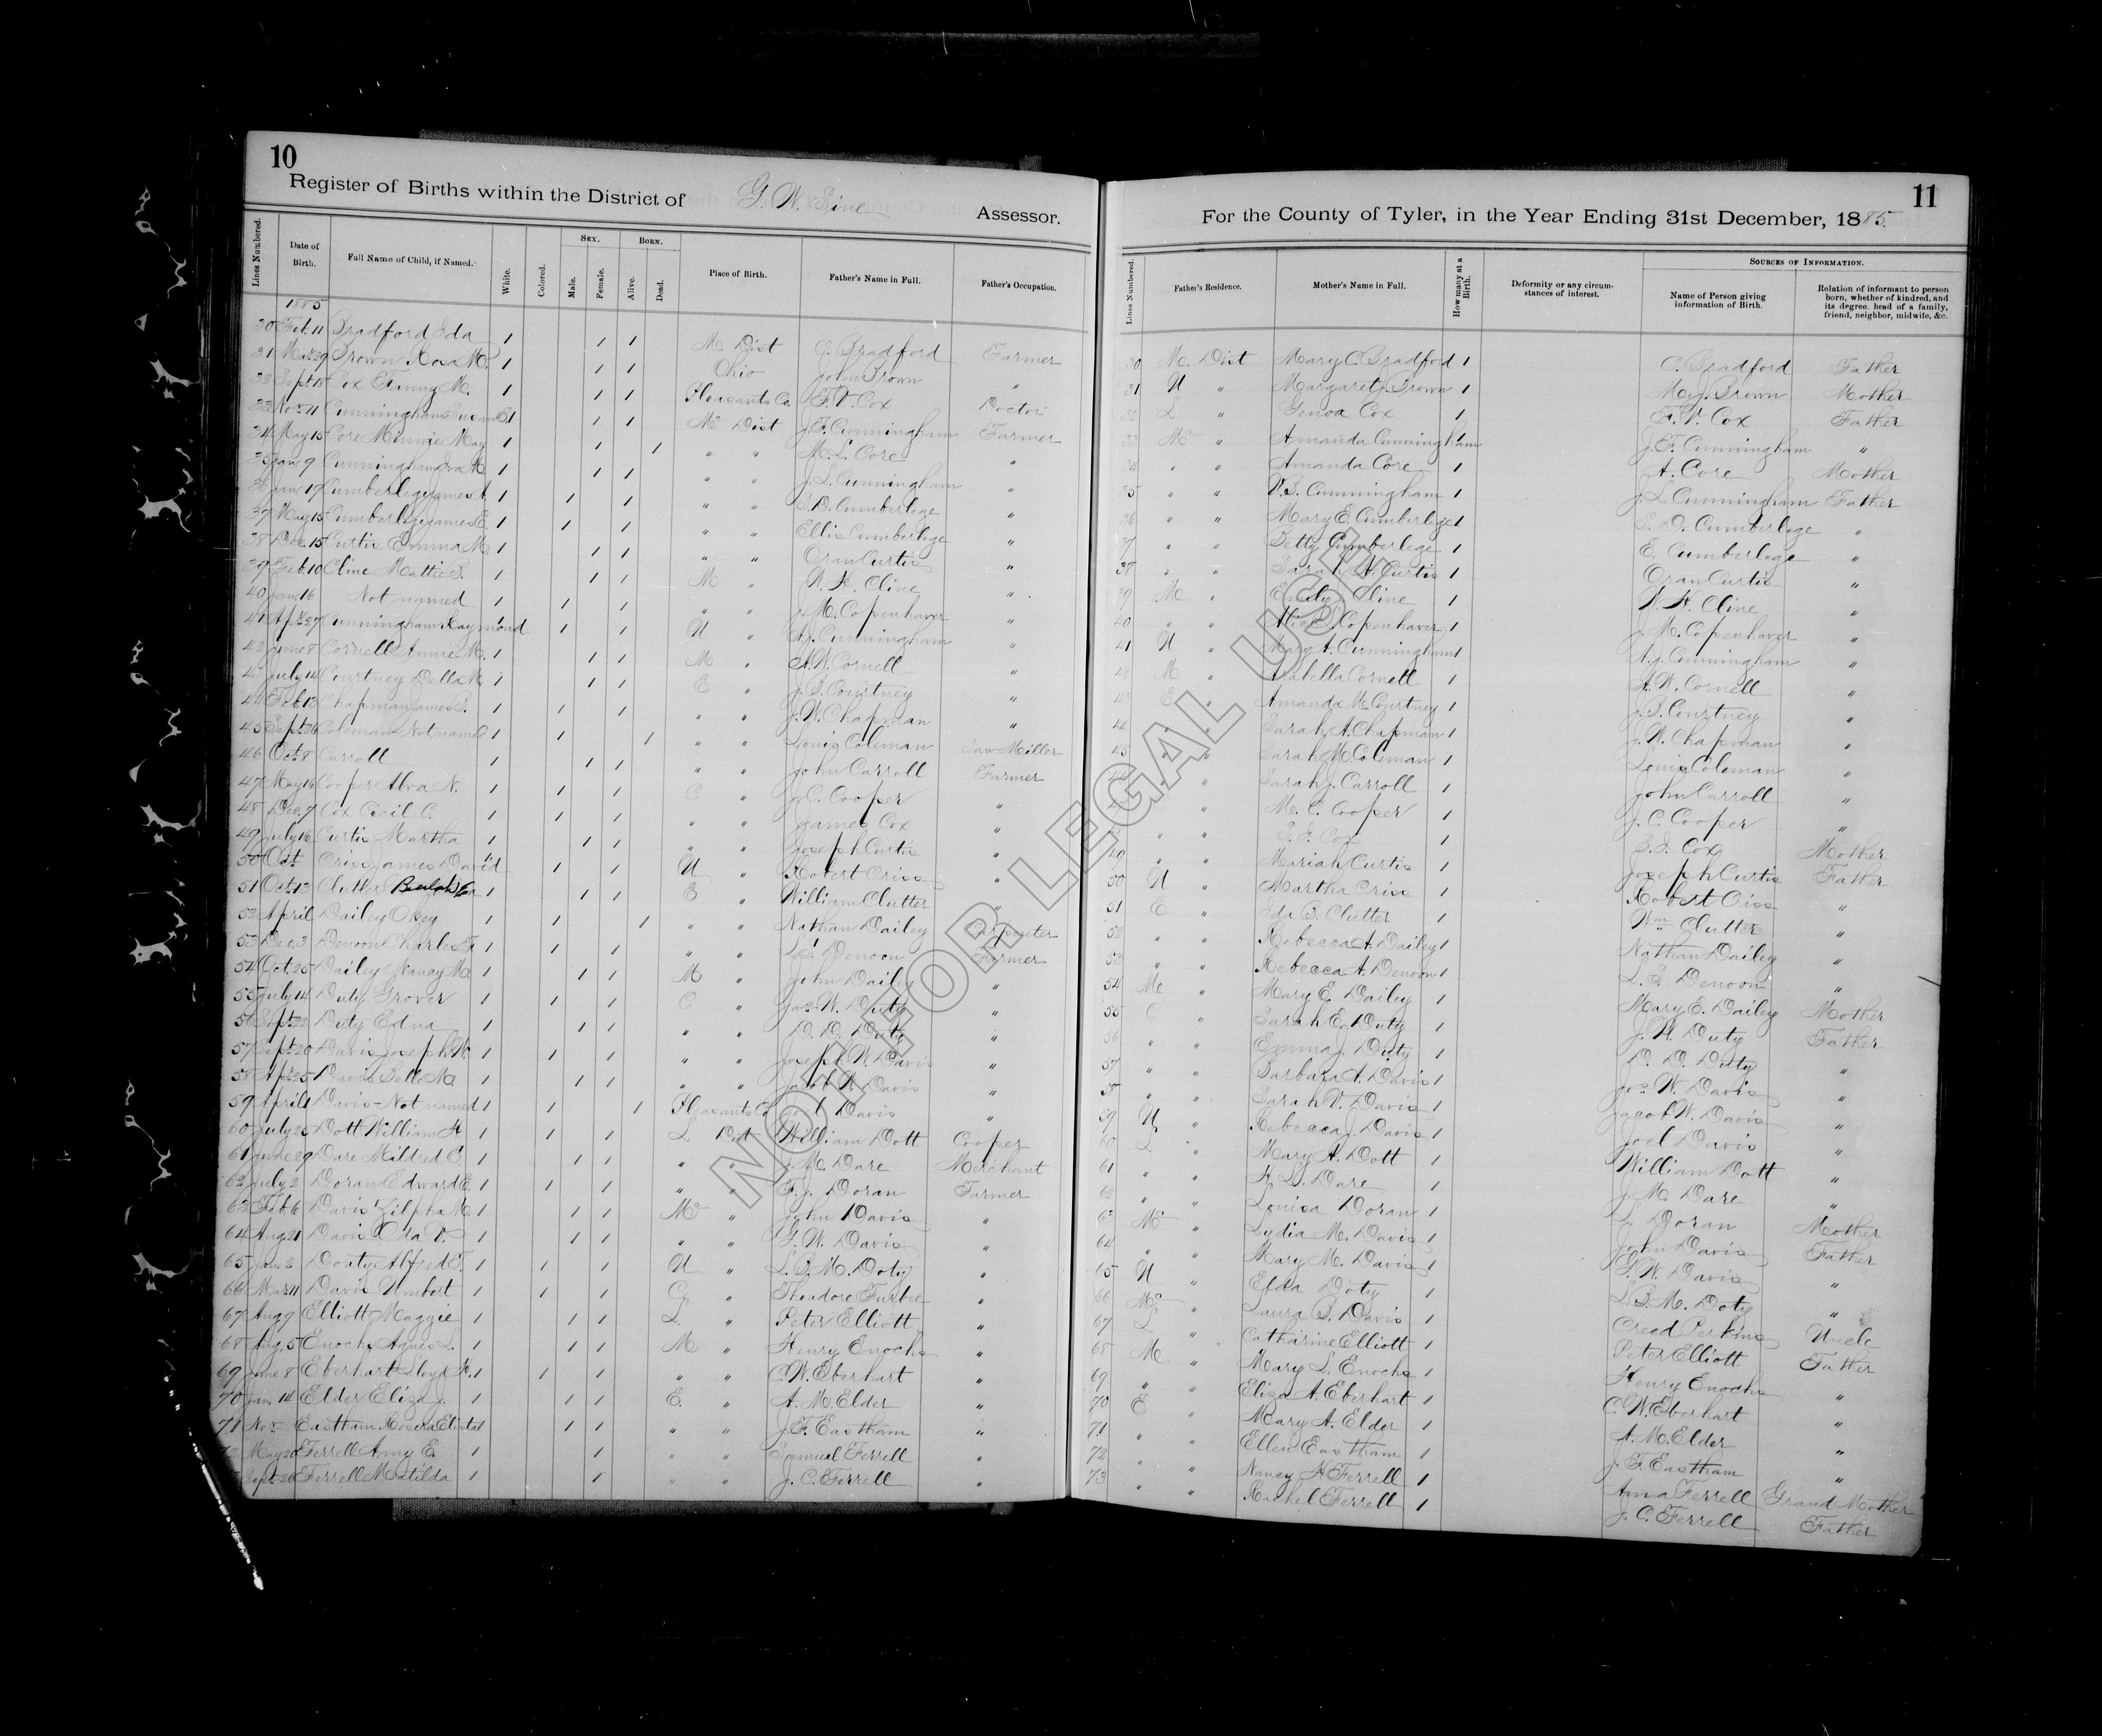 10
Register of Births within the District of G. W. Sine Assessor.
Lines Numbered. Date of Birth. Full Name of Child, if Named. White. Colored. Sex. Male. Female. Born. Alive. Dead. Place of Birth. Father's Name in Full. Father's Occupation.
1885
30 Feb. 11 Bradford Ida 1 1 1 M. Dist C. Bradford Farmer
31 Mar. 29 Brown Rosa M. 1 1 1 Ohio John Brown "
32 Sept 15 Cox Fanny M. 1 1 1 Pleasants Co. F. V. Cox Doctor
33 Nov. 11 Cunningham Susan E. 1 1 1 Mc Dist J. F. Cunningham Farmer
34 May 15 Core Minnie May 1 1 1 " " M. L. Core "
35 Jan. 9 Cunningham Ira M. 1 1 1 " " J. L. Cunningham "
36 Jan. 17 Cumberlege James A. 1 1 1 " " S. D. Cumberlege "
37 May 15 Cumberlege James E. 1 1 1 " " Ellis Cumberlege "
38 Dec. 15 Curtis Emma M. 1 1 1 " " Oran Curtis "
39 Feb. 10 Cline Mattie S. 1 1 1 M " W. H. Cline "
40 Jan. 16 Not named 1 1 1 " " J. M. Copenhaver "
41 Apr. 27 Cunningham Raymond 1 1 1 U " A. J. Cunningham "
42 June 8 Cornell Annie M. 1 1 1 M " A. W. Cornell "
43 July 14 Courtney Della M. 1 1 1 E " J. B. Courtney "
44 Feb. 13 Chapman James S. 1 1 1 " " J. W. Chapman "
45 Sept. 26 Coleman Not named 1 1 1 " " Louis Coleman Saw Miller
46 Oct. 8 Carroll 1 1 1 " " John Carroll Farmer
47 May 16 Cooper Alva N. 1 1 1 C " J. C. Cooper "
48 Dec. 7 Cox Cecil C. 1 1 1 " " James Cox "
49 July 16 Curtis Martha 1 1 1 " " Joseph Curtis "
50 Oct Criss James David 1 1 1 U " Robert Criss "
51 Oct. 13 Clutter Beulah 1 1 1 E " William Clutter "
52 April Dailey Okey 1 1 1 " " Nathan Dailey Carpenter
53 Dec. 3 Denoon Charles F. 1 1 1 " " L. S. Denoon Farmer
54 Oct. 25 Dailey Nancy M. 1 1 1 M " John Dailey "
55 July 14 Duty Grover 1 1 1 C " Jas. W. Duty "
56 Sept. 22 Duty Edna 1 1 1 " " D. D. Duty "
57 Sept. 20 Davis Joseph W. 1 1 1 " " Joseph W. Davis "
58 Apr. 25 Davis Belle M. 1 1 1 " " Jacob W. Davis "
59 April 1 Davis - Not named 1 1 1 Pleasants Co Joel Davis "
60 July 25 Dott William H. 1 1 1 L Dist William Dott Cooper
61 June 29 Dare Mildred E. 1 1 1 " " J. M. Dare Merchant
62 July 2 Doran Edward E. 1 1 1 " " F. J. Doran Farmer
63 Feb. 6 Davis Zilpha M. 1 1 1 Mc " John Davis "
64 Aug. 21 Davis Ida V. 1 1 1 " " G. W. Davis "
65 Jan. 2 Doty Alfred F. 1 1 1 U " L. B. M. Doty "
66 Mar. 11 Davis Umbert 1 1 1 " Theodore Furbee "
67 Aug 9 Elliott Maggie 1 1 1 L. " Peter Elliott "
68 Aug. 5 Enochs Agnes L. 1 1 1 M " Henry Enochs "
69 June 8 Eberhart Lloyd H. 1 1 1 " " C. W. Eberhart "
70 Jan. 14 Elder Eliza J. 1 1 1 E. " A. M. Elder "
71 Nov. Eastham 1 1 1 " " J. F. Eastham "
72 May 20 Ferrell Amy E. 1 1 " " Samuel Ferrell "
Sept. 26 Ferrell Matilda 1 1 " " J. C. Ferrell "
11
For the County of Tyler, in the Year Ending 31st December, 1885.
Lines Numbered. Father's Residence. Mother's Name in Full. How many at a Birth. Deformity or any circumstances of interest. Sources of Information. Name of Person giving information of Birth. Relation of informant to person born, whether of kindred, and its degree, head of a family, friend, neighbor, midwife, &c.
30 M. Dist Mary C. Bradford 1 C. Bradford Father
31 U " Margaret J. Brown 1 M. J. Brown Mother
32 L " Genoa Cox 1 F. V. Cox Father
33 Mc " Amanda Cunningham J. F. Cunningham "
34 " " Amanda Core 1 A. Core Mother
35 " " V. B. Cunningham 1 J. L. Cunningham Father
36 " " Mary E. Cumberlege 1 S. D. Cumberlege "
37 " " Betty Cumberlege 1 E. Cumberlege "
38 " " Sarah A. Curtis 1 Oran Curtis "
39 M " Emily Cline 1 W. H. Cline "
40 " " Alice Copenhaver 1 J. M. Copenhaver "
41 U " Mary A. Cunningham 1 A. J. Cunningham "
42 M " Isabella Cornell 1 A. W. Cornell "
43 E " Amanda M. Courtney 1 J. B. Courtney "
44 " " Sarah A. Chapman 1 J. W. Chapman "
45 " " Sarah M. Coleman 1 Louis Coleman "
" Sarah J. Carroll 1 John Carroll "
" M. C. Cooper 1 J. C. Cooper "
" " S. I. Cox 1 S. I. Cox Mother
49 " " Mariah Curtis 1 Joseph Curtis Father
50 U " Martha Criss 1 Robert Criss "
51 E " Ida B. Clutter 1 Wm Clutter "
52 " " Rebecca A. Dailey 1 Nathan Dailey "
53 " " Rebecca A. Denoon 1 L. S. Denoon "
54 M " Mary E. Dailey 1 Mary E. Dailey Mother
55 C " Sarah E. Duty 1 J. W. Duty Father
56 " " Emma J. Duty 1 D. D. Duty "
57 " " Barbara A. Davis 1 Jos. W. Davis "
58 " " Sarah V. Davis 1 Jacob W. Davis "
59 U " Rebecca J. Davis 1 Joel Davis "
60 L " Mary A. Dott 1 William Dott "
61 " " H. L. Dare 1 J. M. Dare "
62 " " Louisa Doran 1 L. Doran Mother
63 Mc " Lydia M. Davis 1 John Davis Father
64 " " Mary M. Davis 1 G. W. Davis "
65 U " Doty 1 L. B. M. Doty "
66 Mc " Laura B. Davis 1 Creed Perkins Uncle
67 L " Catharine Elliott 1 Peter Elliott Father
68 M " Mary L. Enochs 1 Henry Enochs "
69 " " Eliza A. Eberhart 1 C. W. Eberhart "
70 E " Mary A. Elder 1 A. M. Elder "
71 " " Ellen Eastham 1 J. F. Eastham "
72 " " Nancy H Ferrell 1 Ama Ferrell Grand Mother
73 " " Rachel Ferrell 1 J. C. Ferrell Father
NOT FOR LEGAL USE